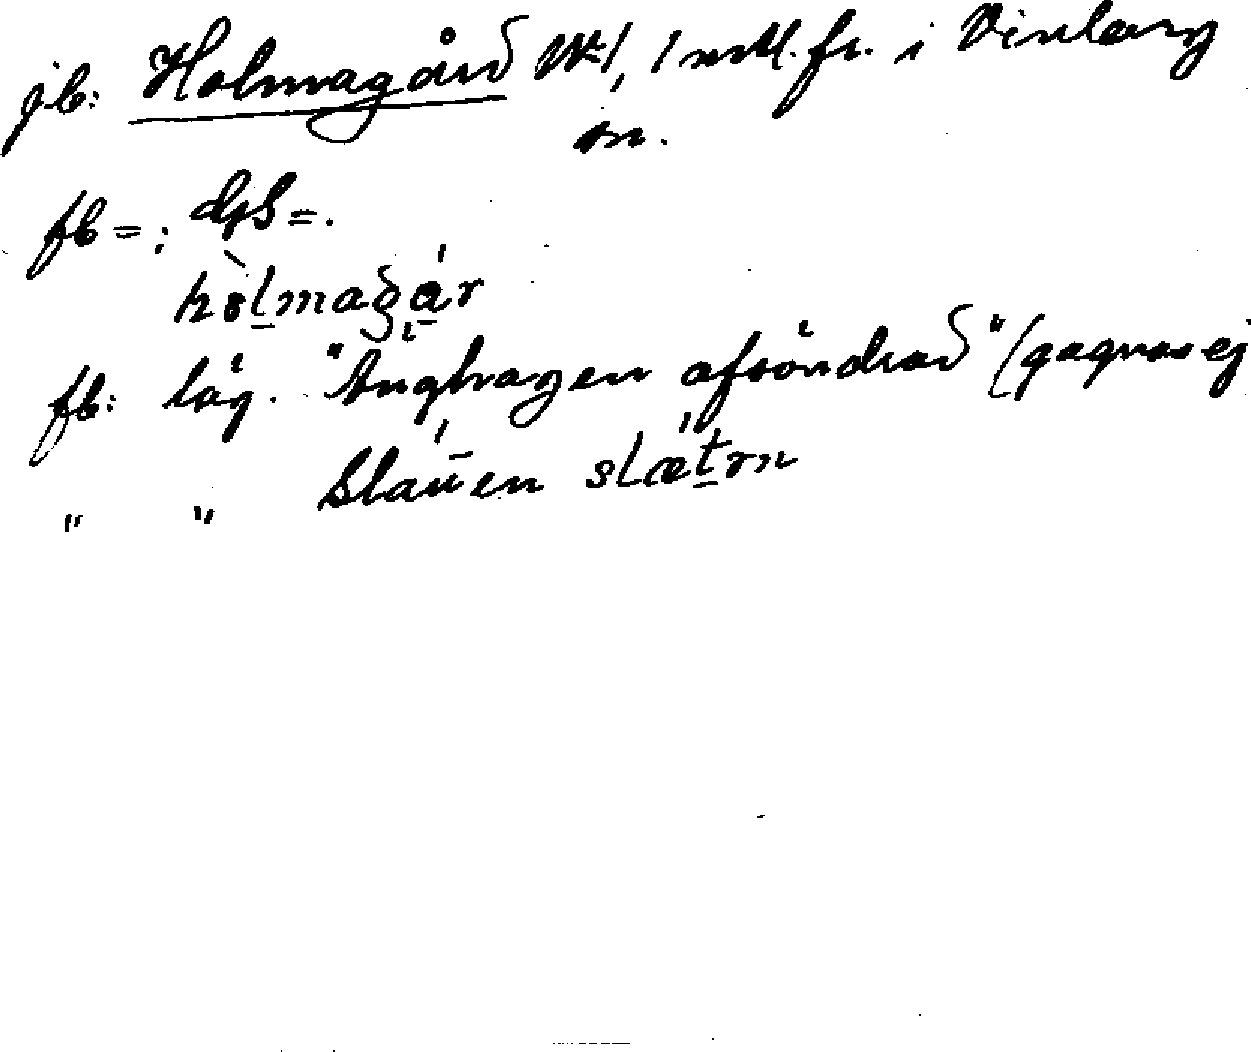 jb: Holmagård Nr 1, 1 mtl. fr. i Vinberg
sn.
fb = ; dgs = .
hòlmagár
fb: läg. "Änghagen afsöndrad" (gagnas ej
" " Slåtten slætrn